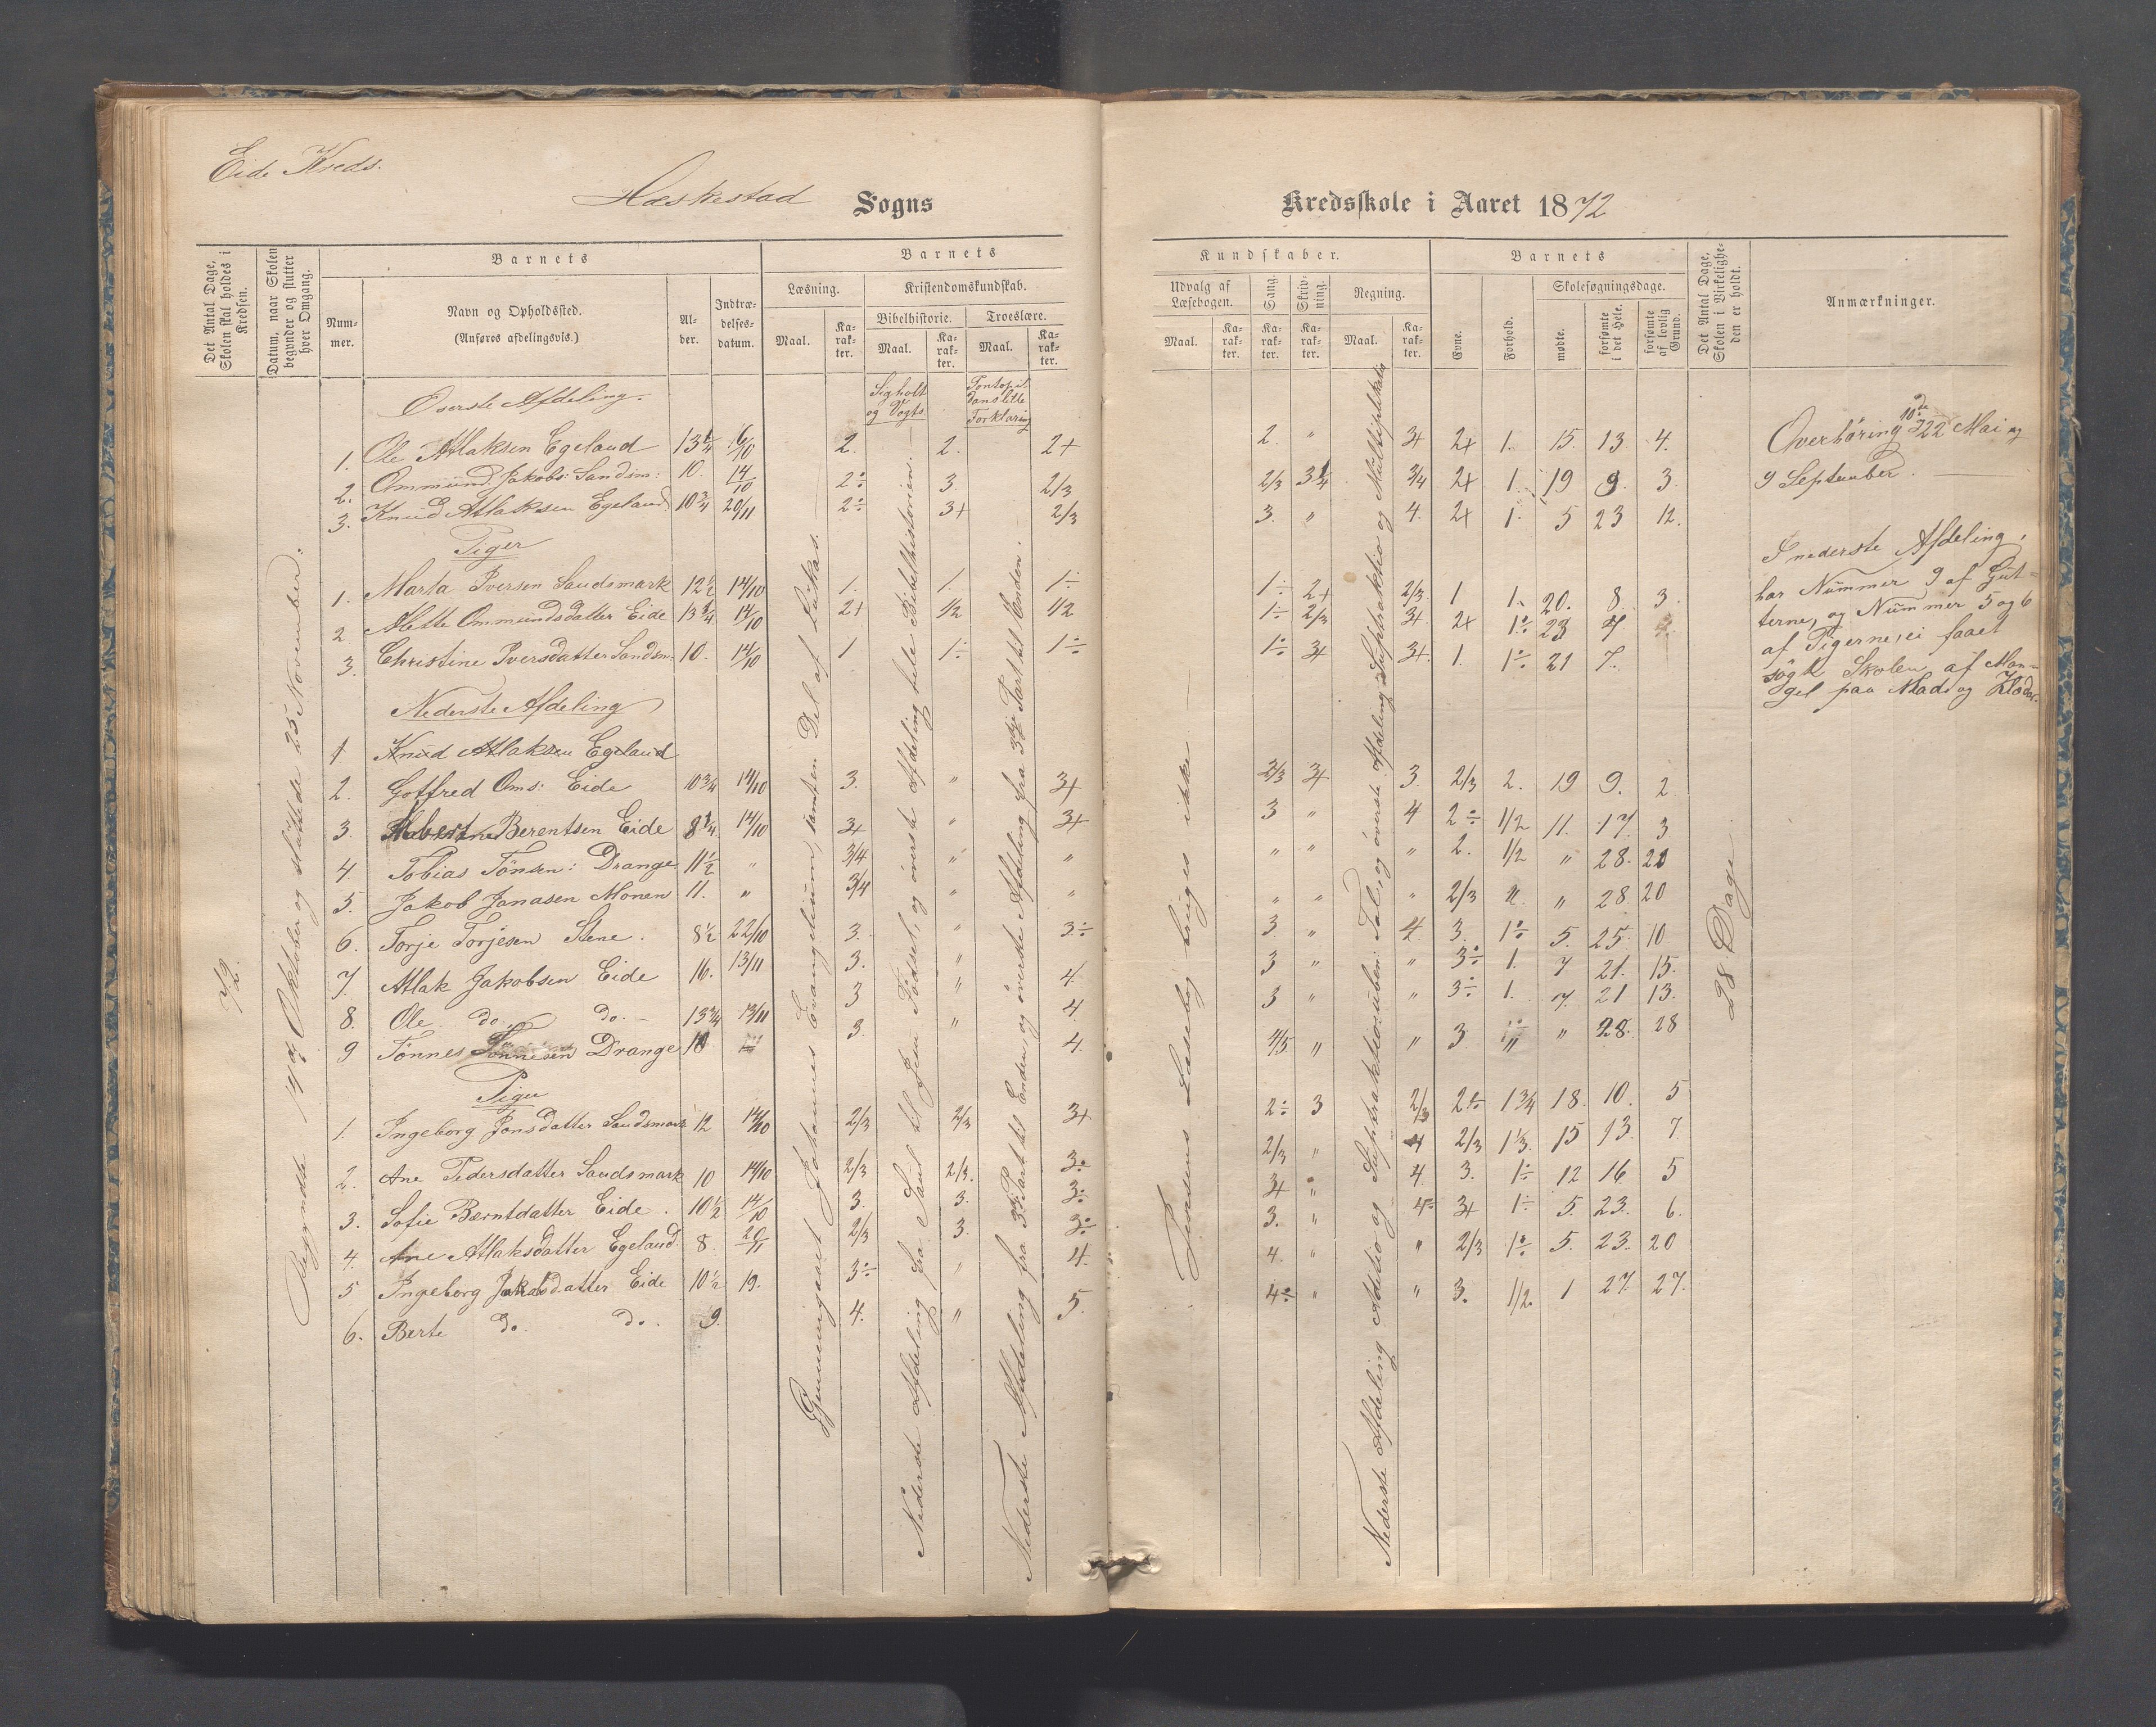 Eide Kreds.
Hæskestad Sogns
Kredsskole i Aaret 1872
Det Antal Dage, Skolen skal holdes i Kredsen.
Datum, naar Skolen begynder og slutter hver Omgang.
Barnets
Nummer.
Navn og Opholdssted.
(Anføres afdelingsvis.)
Alder.
Indtrædelsesdatum.
Barnets
Læsning.
Kristendomskundskab.
Bibelhistorie.
Troeslære.
Maal.
Karakter.
Maal.
Karakter.
Maal.
Karakter.
Kundskaber.
Udvalg af Læsebogen.
Sang.
Skrivning.
Regning.
Maal.
Karakter.
Karakter.
Karakter.
Maal.
Karakter.
Barnets
Evne.
Forhold.
Skolesøgningsdage.
mødte.
forsømte i det Hele.
forsømte af lovlig Grund.
Det Antal Dage, Skolen i Virkeligheden er holdt.
Anmærkninger.
72.
Begyndte 14de Oktober og sluttede 25 November.
Gjennemgaaet Johannes Evangelium, samten Del af Lukas.
Sigholt og Vogts
Nederste Afdeling fra Saul til Jesu Fødsel, og överste Afdeling hele Bibelhistorien.
Forklaring
Nederste Afdeling fra 3die Part til Enden, og överste Afdeling fra 3die Part til Enden.
Jensens Læsebog bruges ikke
Nederste Afdeling Additio og Suptraktio: uben: Tal, og överste Afdeling Suptraktio og Multiplikatio
28 Dage
Overste Afdeling.
1. Ole Atlaksen Egeland 13 1/4 16/10 2. 2. 2+ 2. " 3+ 2+ 1. 15. 13. 4.
2. Ommund Jakobs: Sandsm: 10. 14/10 2÷ 3 2/3 2/3 3 1/4 3/4 2+ 1. 19 9. 3.
3. Knud Atlaksen Egeland 10 3/4 20/11 2÷ 3+ 2/3 3. " 4. 2+ 1. 5 23 12.
Piger
1. Marta Iversen Sandsmark 12 1/2 14/10 1. 1. 1÷ 1÷ 2+ 2/3. 1 1. 20. 8. 3.
2 Alette Ommundsdatter Eide 13 1/4 14/10 2+ 1/2 1/2 1÷ 2/3 3+. 2+ 1÷ 23 7.
3. Christine Iversdatter Sandsm. 10. 14/10 1 1÷ 1÷ 1÷ 3+ 3+. 1. 1÷ 21 7.
Nederste Afdeling
1 Knud Atlaksen Egeland
2. Gotfred Oms: Eide 10 3/4 14/10 3. " 3+ 2/3 3+ 3 2/3 2. 19 9. 2
3. Berentsen Eide 8 1/4 14/10 3+ " 3+ 3 " 4 2÷ 1/2 11. 17. 3
4. Tobias Tönsen: Drange 11 1/2 " 3/4 " " " " " 2. 1/2 " 28. 20
5. Jakob Janasen Monen 11. " 3/4 " " " " " 2/3 " 28 20
6. Torje Torjesen Stene. 8 1/2 22/10 3. " 3÷ 3. " 4. 3. 1÷ 5. 25. 10
7. Atlak Jakobsen Eide 16. 13/11 3. " 4. 3 " " 3÷ 1. 7 21. 15.
8. Ole do. do. 13 3/4 13/11 3 " 4. 3 " " 3÷ 1. 7. 21 13.
9 Tönnes Tönnesen Drange 10 3. " 4. 4/5 " " 3 " 28. 28
Piger
1. Ingeborg Jonsdatter Sandsmark 12 14/10 2/3 2/3 3+ 2÷ 3 2/3 2÷ 1 3/4 18. 10. 5
2. Ane Pedersdatter Sandsmark 10 14/10 2/3 2/3. 3÷ 2/3 " 4 2/3 1 1/3. 15 13. 7.
3. Sofie Bærntdatter Eide. 10 1/2 14/10 3. 3. 3÷ 3+ " 4. 3. 1÷ 12 16. 5
4. Ane Atlaksdatter Egeland. 8. 20/11 2/3 3. 3÷ 3. " 4÷ 3+ 1÷ 5. 23. 6.
5 Ingeborg Jakobsdatter Eide 10 1/2 19. 3÷ " 4. 4. " " 2/3 1÷ 5. 23. 20
6. Berte do. do. 9. 4. " 5. 4÷ " " 3. 1/2. 1 27. 27.
Overhöring 10de 22 Mai og
9 September.
I nederste Afdeling,
har Nummer 9 af Gut-
terne, og Nummer 5 og 6
af Pigerne, ei faaet
sögt Skolen, af Man-
gel paa Mad og Klæder.